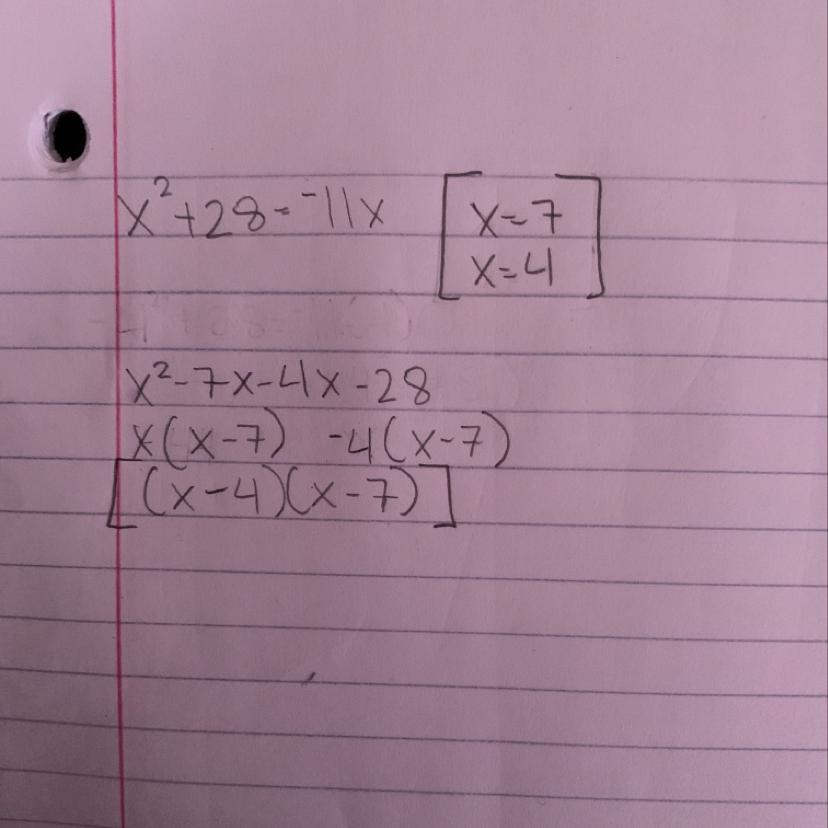 x²+28=-11x
x=7
x=4
x²-7x-4x-28
x(x-7) -4(x-7)
(x-4)(x-7)